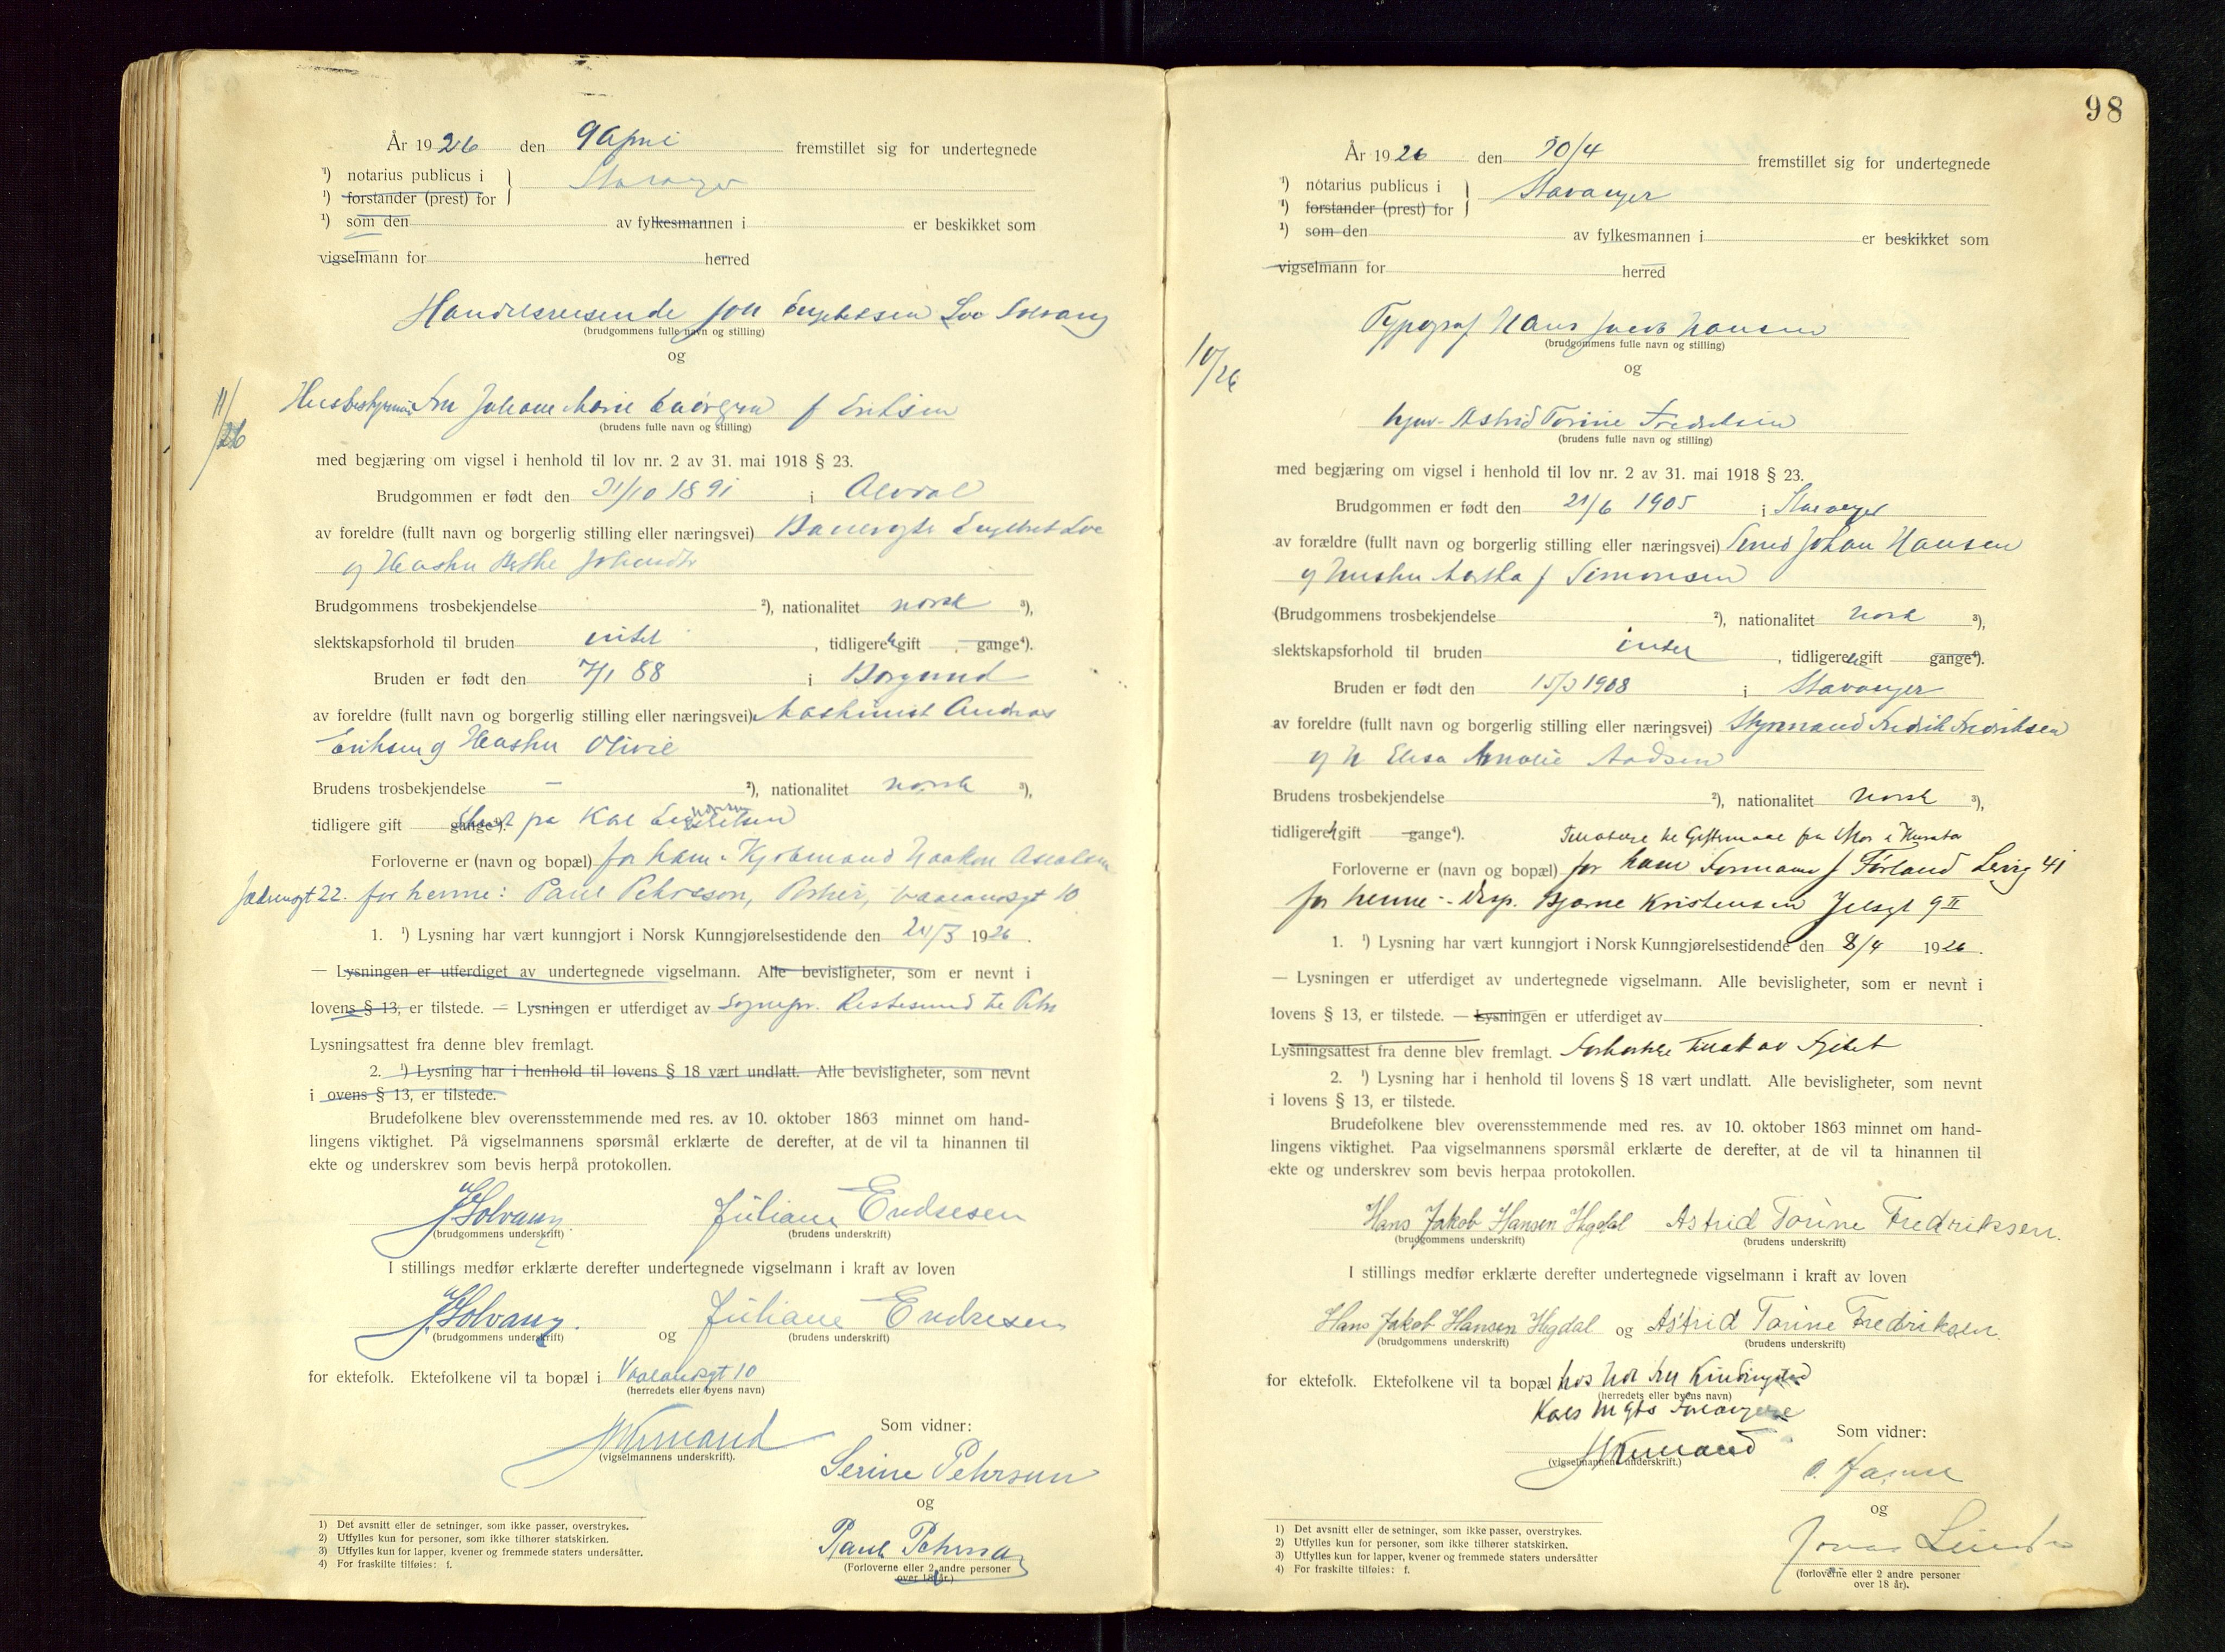 År 1926 den 9 April fremstillet sig for undertegnede
¹) notarius publicus i
¹) forstander (prest) for
Stavanger
¹) som den av fylkesmannen i er beskikket som
vigselmann for herred
Handelsreisende Engebretsen Loe Solvang
(brudgommens fulle navn og stilling)
og
11/26
Fru Marie f Eriksen
(brudens fulle navn og stilling)
med begjæring om vigsel i henhold til lov nr. 2 av 31. mai 1918 § 23.
Brudgommen er født den 31/10 1891 i Alvdal
av foreldre (fullt navn og borgerlig stilling eller næringsvei) Engebret Loe
og Hustru
Brudgommens trosbekjendelse ²), nationalitet norsk ³),
slektskapsforhold til bruden intet , tidligere gift gange⁴).
Bruden er født den 7/1 88 i Borgund
av foreldre (fullt navn og borgerlig stilling eller næringsvei) Maskinist Andreas
Eriksen og Hustru Olivie
Brudens trosbekjendelse — ²), nationalitet norsk ³),
tidligere gift gange⁴).
Forloverne er (navn og bopæl) for ham: Kjøbmand Haakon
Jadarnsgt 22. for henne: Paul Pehrsson, Vaalandsgt 10
1. ¹) Lysning har vært kunngjort i Norsk Kunngjørelsestidende den 24/3 1926.
— Lysningen er utferdiget av undertegnede vigselmann. Alle bevisligheter, som er nevnt i
lovens § 13, er tilstede. — Lysningen er utferdiget av Sognepr.
Lysningsattest fra denne blev fremlagt.
2. ¹) Lysning har i henhold til lovens § 18 vært undlatt. Alle bevisligheter, som nevnt
i ovens § 13, er tilstede.
Brudefolkene blev overensstemmende med res. av 10. oktober 1863 minnet om hand-
lingens viktighet. På vigselmannens spørsmål erklærte de derefter, at de vil ta hinannen til
ekte og underskrev som bevis herpå protokollen.
Solvang Juliane Endresen
(brudgommens underskrift) (brudens underskrift)
I stillings medfør erklærte derefter undertegnede vigselmann i kraft av loven
Solvang. og Juliane Endresen
(brudgommens underskrift) (brudens underskrift)
for ektefolk. Ektefolkene vil ta bopæl i Vaalandsgt 10
(herredets eller byens navn)
(vigselmannens underskrift).
Som vidner:
Serine Pehrson
og
Paul Pehrson
(Forloverne eller 2 andre personer
over 18 år.)
1) Det avsnitt eller de setninger, som ikke passer, overstrykes.
2) Utfylles kun for personer, som ikke tilhører statskirken.
3) Utfylles kun for lapper, kvener og fremmede staters undersåtter.
4) For fraskilte tilføies: f.
98
År 1926 den 30/4 fremstillet sig for undertegnede
¹) notarius publicus i
¹) forstander (prest) for
Stavanger
¹) som den av fylkesmannen i er beskikket som
vigselmann for herred
Typograf Hans Jacob Hansen
(brudgommens fulle navn og stilling)
og
10/26
Astrid Torine Fredriksen
(brudens fulle navn og stilling)
med begjæring om vigsel i henhold til lov nr. 2 av 31. mai 1918 § 23.
Brudgommen er født den 21/6 1905 i Stavanger
av forældre (fullt navn og borgerlig stilling eller næringsvei) Smed Johan Hansen
og hustru f Simonsen
(Brudgommens trosbekjendelse ²), nationalitet norsk ³),
slektskapsforhold til bruden intet , tidligere gift gange⁴).
Bruden er født den 15/3 1908 i Stavanger
av foreldre (fullt navn og borgerlig stilling eller næringsvei) Styrmand Fredrik Fredriksen
og h Elisa Amalie
Brudens trosbekjendelse ²), nationalitet norsk ³),
tidligere gift gange⁴). Tilladelse til Giftermaal fra Mor
Forloverne er (navn og bopæl) for ham Formann J Førland 41
for henne: Disp. Bjarne Kristensen Jelsgt 9 II
1. ¹) Lysning har vært kunngjort i Norsk Kunngjørelsestidende den 8/4 1926.
— Lysningen er utferdiget av undertegnede vigselmann. Alle bevisligheter, som er nevnt i
lovens § 13, er tilstede. — Lysningen er utferdiget av
Lysningsattest fra denne blev fremlagt.
2. ¹) Lysning har i henhold til lovens § 18 vært undlatt. Alle bevisligheter, som nevnt
i lovens § 13, er tilstede.
Brudefolkene blev overensstemmende med res. av 10. oktober 1863 minnet om hand-
lingens viktighet. Paa vigselmannens spørsmål erklærte de derefter, at de vil ta hinannen til
ekte og underskrev som bevis herpaa protokollen.
Hans Jakob Hansen Hegdal Astrid Torine Fredriksen.
(brudgommens underskrift) (brudens underskrift)
I stillings medfør erklærte derefter undertegnede vigselmann i kraft av loven
Hans Jakob Hansen Hegdal og Astrid Torine Fredriksen.
(brudgommens underskrift) (brudens underskrift)
for ektefolk. Ektefolkene vil ta bopæl hos
(herredets eller byens navn)
(vigselmannens underskrift.)
Som vidner:
og
Jonas
(forloverne eller 2 andre personer
over 18 år).
1) Det avsnitt eller de setninger, som ikke passer, overstrykes.
2) Utfylles kun for personer, som ikke tilhører statskirken.
3) Utfylles kun for lapper, kvener og fremmede staters undersåtter
4) For fraskilte tilføies: f.